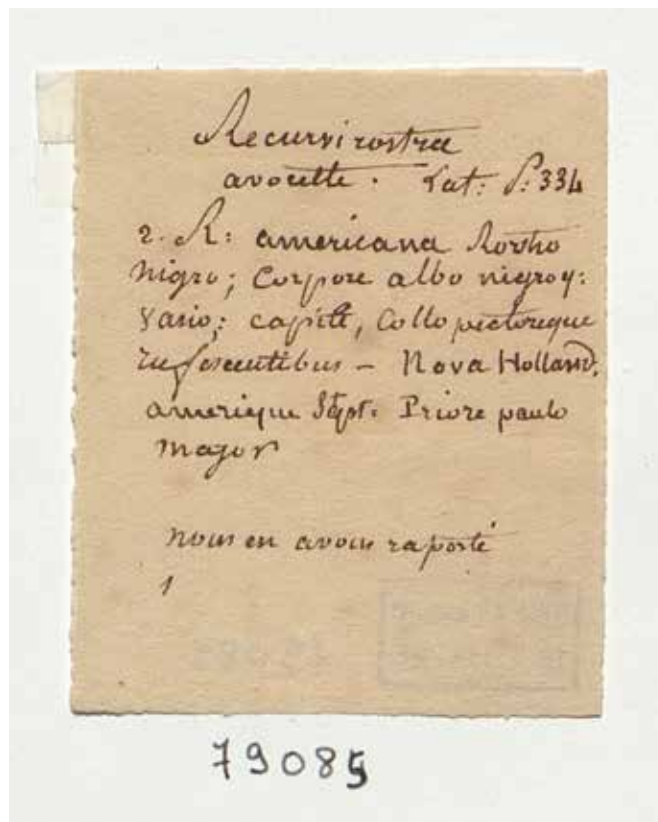 Recurvirostra
avocette. Lat: P: 334
2. R: americana Rostro
nigro; Corpore albo nigroq:
vario; capite, Collo pectoreque
rufescentibus – Nova Holland.
amerique Sept: Priore paulo
major
nous en avons raporté
1
79085